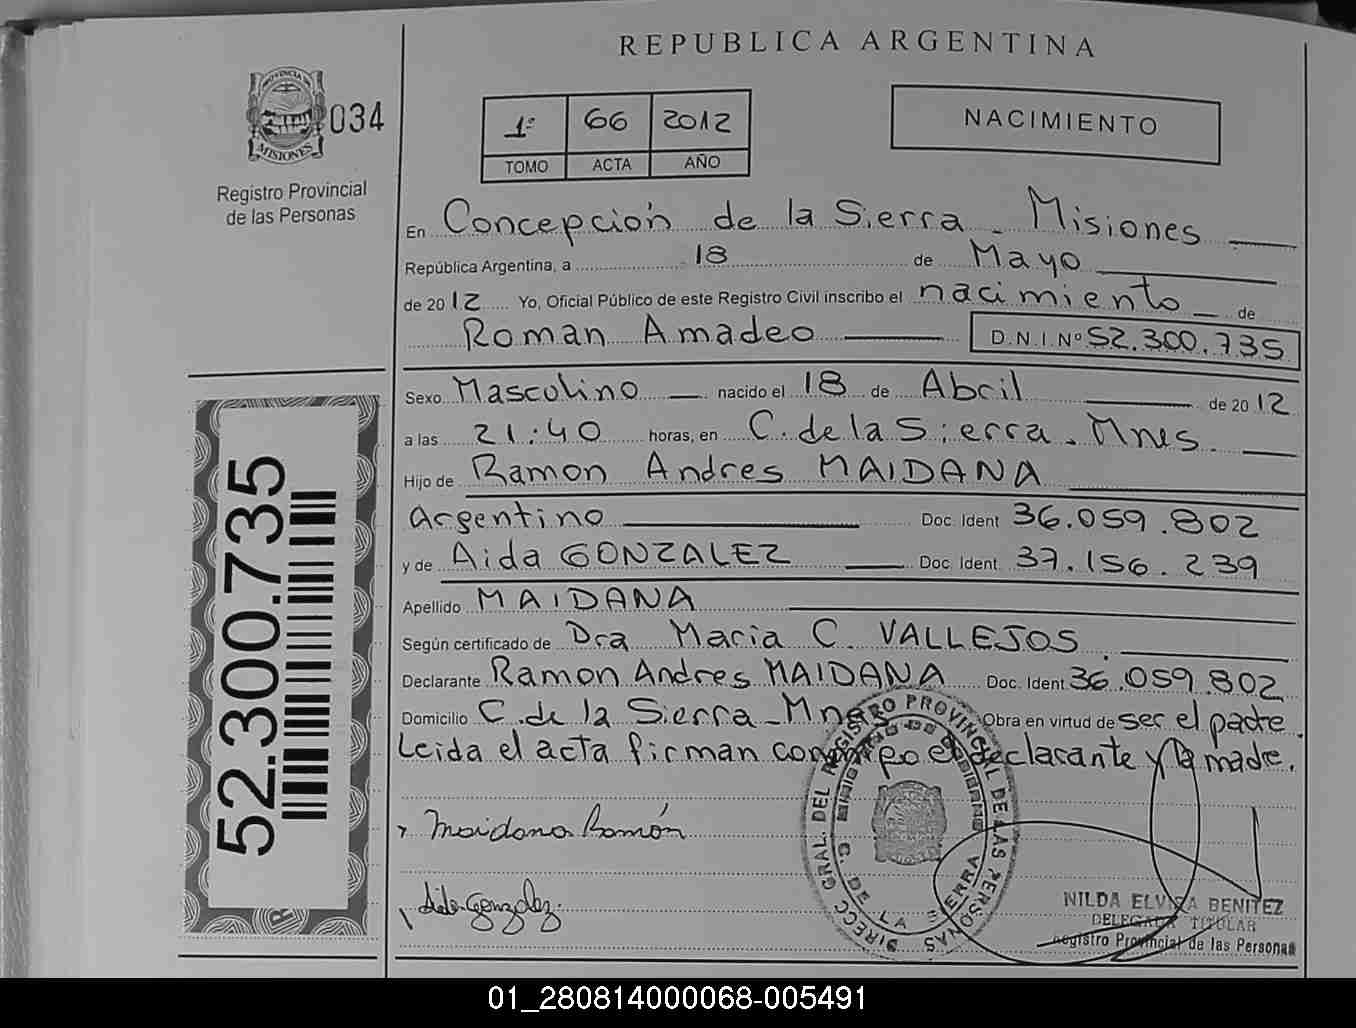 REPUBLICA ARGENTINA
PROVINCIA DE
MISIONES
034
Registro Provincial
de las Personas
1º 66 2012
TOMO ACTA AÑO
NACIMIENTO
En Concepción de la Sierra - Misiones
República Argentina, a 18 de Mayo
de 2012 Yo, Oficial Público de este Registro Civil inscribo el nacimiento de
Roman Amadeo D.N.I.Nº 52.300.735
Sexo Masculino nacido el 18 de Abril de 2012
a las 21:40 horas, en C. de la Sierra. Mnes.
Hijo de Ramon Andres MAIDANA
Argentino Doc. Ident 36.059.802
y de Aida GONZALEZ Doc. Ident. 37.156.239
Apellido MAIDANA
Según certificado de Dra Maria C. VALLEJOS.
Declarante Ramon Andres MAIDANA Doc. Ident. 36.059.802
Domicilio C. de la Sierra - Mnes Obra en virtud de ser el padre.
Leida el acta firman conmigo el declarante y la madre.
52.300.735
Maidana Ramón
Aida Gonzalez.
DIRECC GRAL. DEL REGISTRO PROVINCIAL DE LAS PERSONAS
C. DE LA SIERRA
NILDA ELVIRA BENITEZ
DELEGADA TITULAR
Registro Provincial de las Personas
01_280814000068-005491